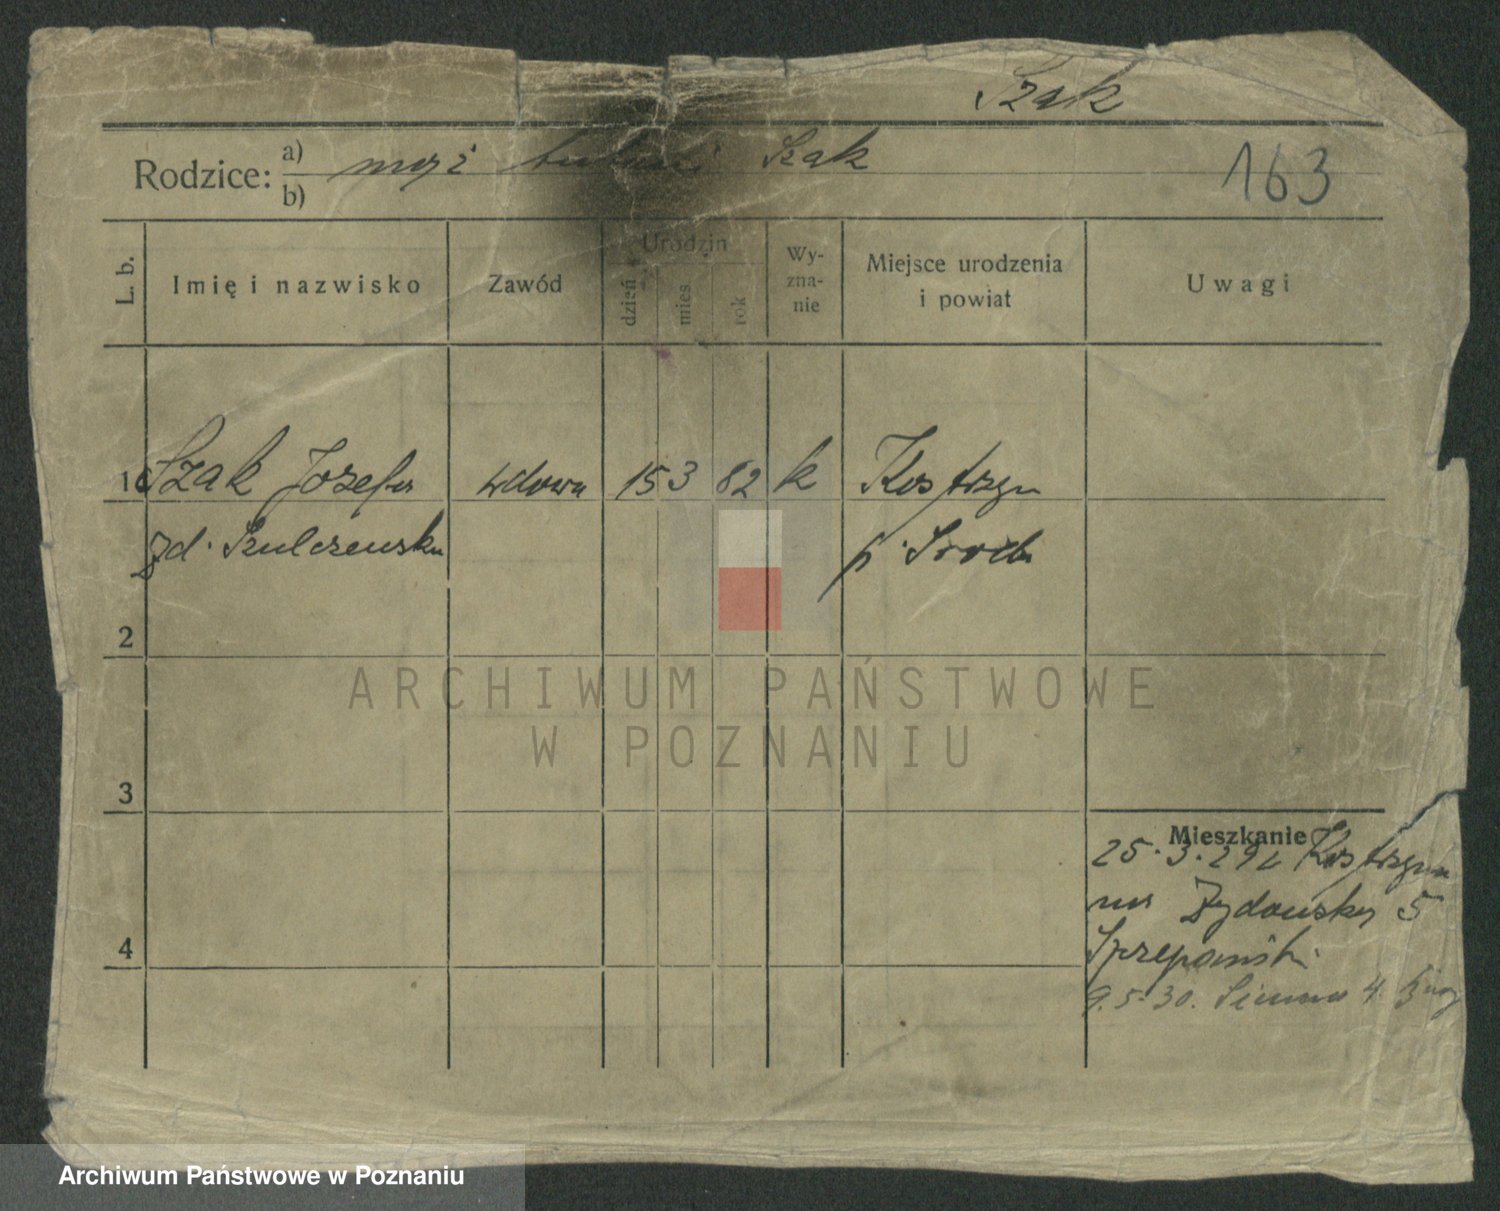 Szak
Rodzice: a) mąż Szak
b)
163
L. b.
Imię i nazwisko
Zawód
Urodzin
dzień
mies
rok
Wy-
zna-
nie
Miejsce urodzenia
i powiat
Uwagi
1 Szak Józefa wdowa 15 3 82 k Kostrzyn
zd. Szulczewska p. Środa
2
3
4
Mieszkanie
25.3.29 z Kostrzyna
na Żydowską 5
9.5.30. 4
ARCHIWUM PAŃSTWOWE
W POZNANIU
Archiwum Państwowe w Poznaniu